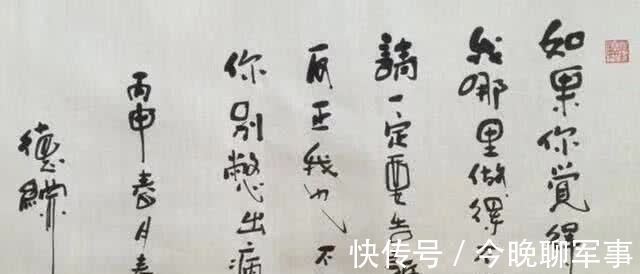 如果你覺得
我哪里做得
請一定要告
反正我也不
你别憋出病
丙申春月
德綱
快传号 / 今晚聊军事